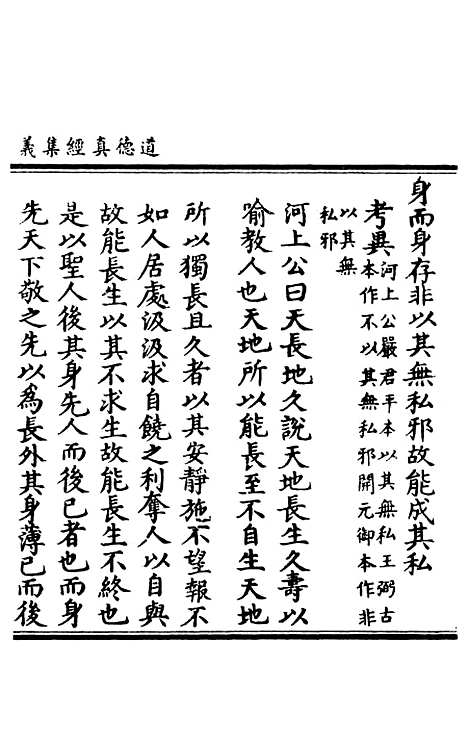 道德真經集義
身而身存非以其無私邪故能成其私
考異河上公嚴君平本以其無私王弼古
本作不以其無私邪開元御本作非
以其無
私邪
河上公曰天長地久說天地長生久壽以
喻教人也天地所以能長至不自生天地
所以獨長且久者以其安靜施不望報不
如人居處汲汲求自饒之利奪人以自與
故能長生以其不求生故能長生不終也
是以聖人後其身先人而後己者也而身
先天下敬之先以為長外其身薄己而後